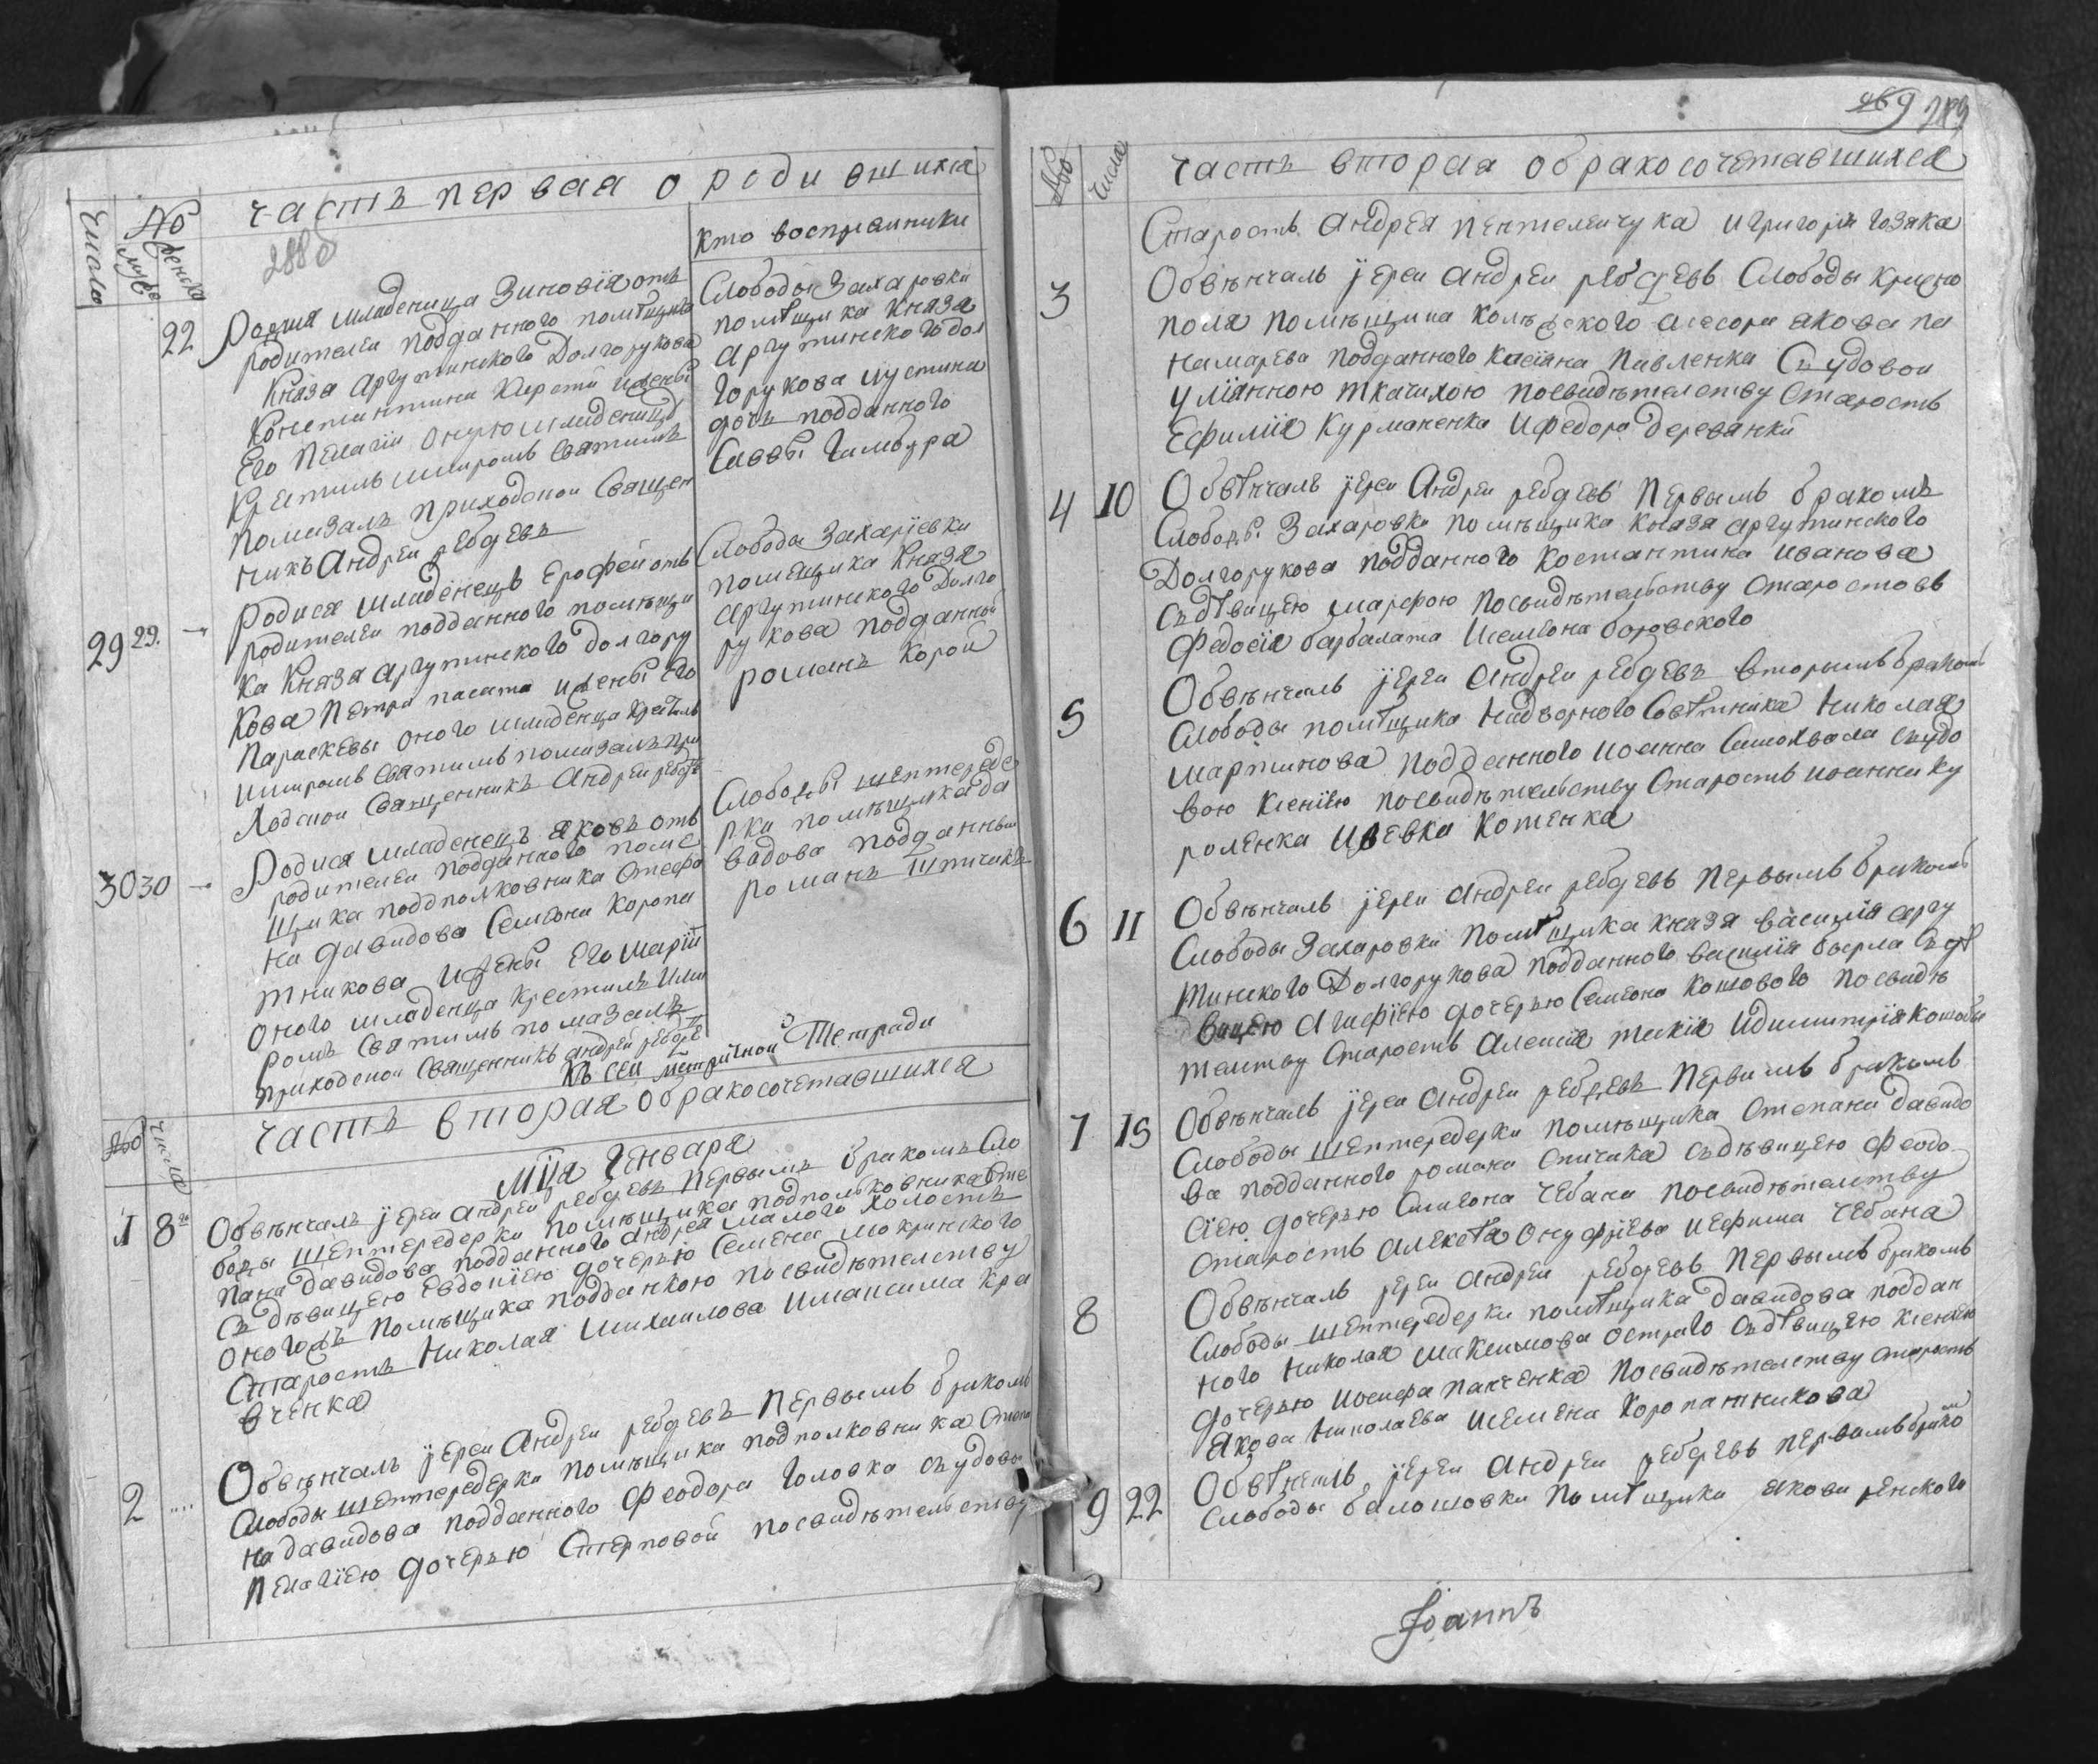 часть первая о родившихся
Числа
№
муж
женска
288 б
кто восприемники
22
Родися младеница Зиновїя отъ
родителей подданного помѣщика
Князя Аргутинского Долгорукова
Константина жены
Его Пелагїи оную младеницу
Крестилъ миромъ святымъ
помазалъ приходскои Священ
никъ Андрей Ребдевъ
Слободы Захаровки
помѣщика Князя
Аргутинского Дол
горукова Иустина
дочь подданного
Саввы
29 29. —
Родися младенецъ Ерофей отъ
родителей подданного помѣщи
ка Князя Аргутинского Долгору
кова Петра и жены Его
Параскевы оного младенца крестилъ
миромъ святымъ помазалъ при
ходскои Священникъ Андрей
Слободы Захарїевки
помещика Князя
Аргутинского Долго
рукова подданной
романъ Корой
30 30 —
Родися младенецъ Яковъ отъ
родителей подданного поме
щика подполковника Стефа
на Давидова Семеона Коропа
тникова и жены Его Марїи
оного младенца крестилъ и ми
ромъ святымъ помазалъ
приходскои Священникъ Андрей
Слободы Шептередe
рки помѣщика Да
видова подданный
романъ
Къ сей метричной Тетради
часть вторая о бракосочетавшихся
№
числа
Мца Генваря
1 8го
Обвѣнчалъ їерей Андрей Ребдевъ Первымъ бракомъ Сло
боды Шептередерки помѣщика подполковника Сте
пана Давидова подданного Андрея малого холостъ
Съ дѣвицею Евдокїею дочерью Семена Мокринского
оногожъ помѣщика подданкою посвидѣтелству
Старостъ Николая Михаилова и Максима Кра
вченка
2 ....
Обвѣнчалъ їерей Андрей Ребдевъ Первымъ бракомъ
Слободы Шептередерки помѣщика подполковника Степа
на Давидова подданного Феодора Головка съ удово
Пелагїею дочерью посвидѣтелству
289
№
числа
часть вторая о бракосочетавшихся
Старостъ Андрея Пентелеичука и Григорїя Козака
3
Обвѣнчалъ їерей Андрей Ребдевъ Слободы Крисно
поля помѣщика Колѣжского Асесора Якова По
намарева подданного Касїяна Павленка Съ удовои
Улїянною Ткачихою посвидѣтелству Старостъ
Ефимїя Курманенка и Федора Деревянки
4 10
Обвѣнчалъ їерей Андрей Ребдевъ Первымъ бракомъ
Слободы Захаровки помѣщика Князя Аргутинского
Долгорукова подданного Костантина Иванова
Съ дѣвицею Марфою посвидѣтельству Старостовъ
Федосїя Барбалата и Семеона Боровского
5
Обвѣнчалъ їерей Андрей Ребдевъ вторымъ бракомъ
Слободы помѣщика Надворного Совѣтника Николая
Мартинова подданного Иоанна Самохвала съ удо
вою Ксенїею посвидѣтельству Старостъ Иоанна Ку
роленка и Иевка Котенка
6 11
Обвѣнчалъ їерей Андрей Ребдевъ Первымъ бракомъ
Слободы Захаровки помѣщика Князя Василїя Аргу
тинского Долгорукова подданного Василїя Съ дѣ
вицею Агафїею дочерью Семеона Кошового посвидѣ
телству Старостъ Алексїя и Димитрїя Кошовы
7 15
Обвѣнчалъ їерей Андрей Ребдевъ Первымъ бракомъ
Слободы Шептередерки помѣщика Степана Давидо
ва подданного романа Спичака Съ дѣвицею Феодо
сїею дочерью Симеона Чебана посвидѣтелству
Старостъ Алексѣя Онуфрїева и Ефима Чебана
8
Обвѣнчалъ їерей Андрей Ребдевъ Первымъ бракомъ
Слободы Шептередерки помѣщика Давидова поддан
ного Николая Максимова острого Съ дѣвицею Ксенїею
дочерью Иосифа Панченка посвидѣтелству старостъ
Якова Николаева и Семена Коропатникова
9 22
Обвѣнчалъ їерей Андрей Ребдевъ первымъ бракомъ
Слободы Балошовки помѣщика Якова Ренского
Іоаннъ